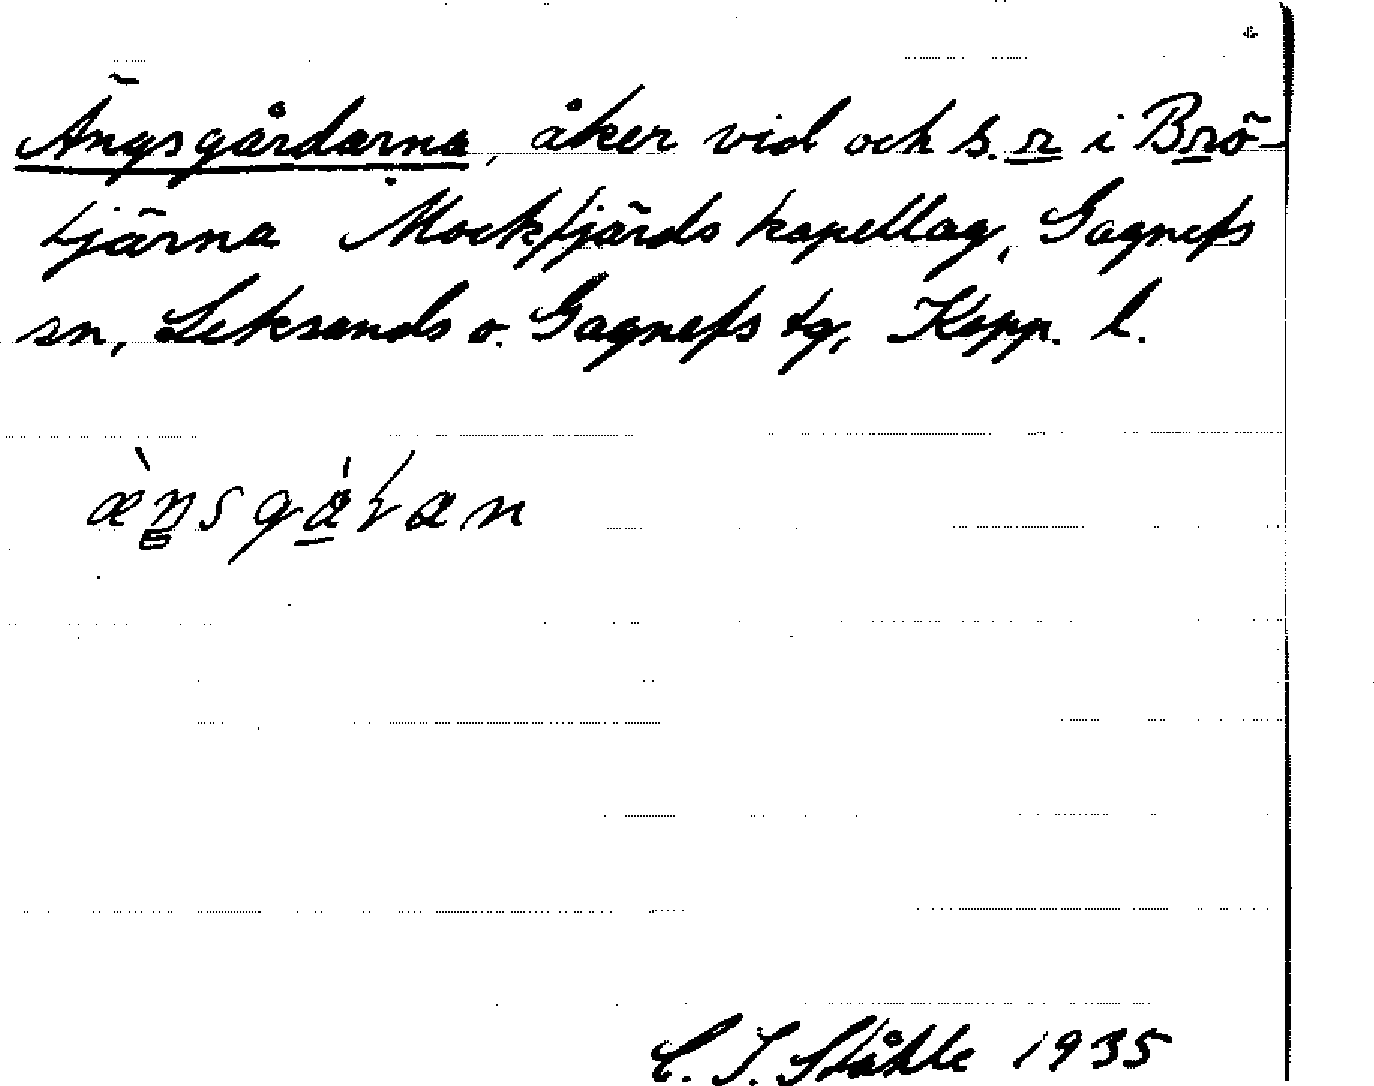 Ängsgårdarna, åker vid och s. r i Brö-
tjärna Mockfjärds kapellag, Gagnefs
sn, Leksands o. Gagnefs tg, Kopp. l.
C. I. Ståhle 1935